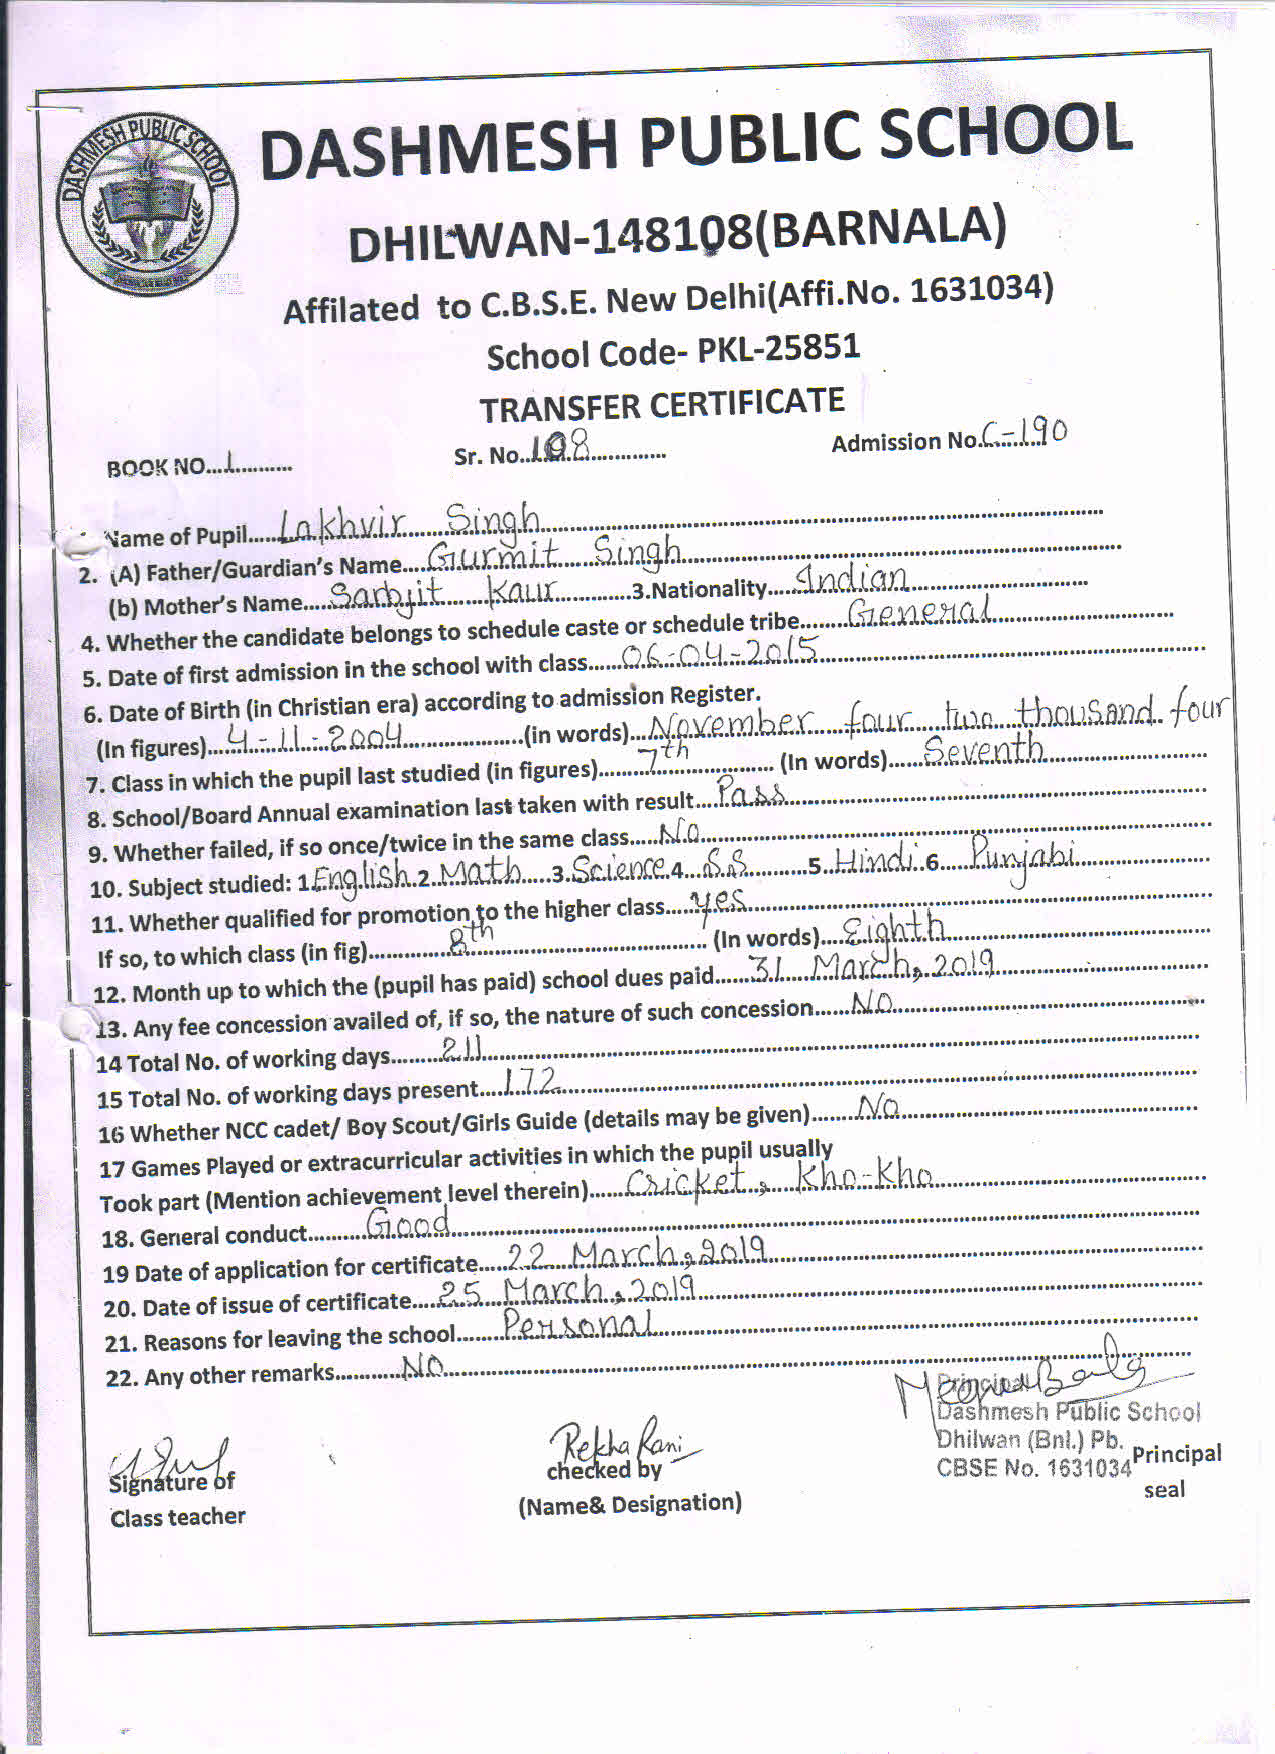 DASHMESH PUBLIC SCHOOL
DASHMESH PUBLIC SCHOOL
DHILWAN-148108(BARNALA)
Affilated to C.B.S.E. New Delhi(Affi.No. 1631034)
School Code- PKL-25851
TRANSFER CERTIFICATE
BOOK NO...1.......... Sr. No..108............. Admission No.C-190
Name of Pupil.....Lakhvir Singh
2. (A) Father/Guardian's Name....Gurmit Singh
(b) Mother's Name.....Sarbjit Kaur............3.Nationality.....Indian
4. Whether the candidate belongs to schedule caste or schedule tribe.......General
5. Date of first admission in the school with class......06-04-2015
6. Date of Birth (in Christian era) according to admission Register.
(In figures)....4-11-2004.................(in words)...November four two thousand four
7. Class in which the pupil last studied (in figures)........7th................ (In words)......Seventh
8. School/Board Annual examination last taken with result....Pass
9. Whether failed, if so once/twice in the same class.....No
10. Subject studied: 1.English.2..Math....3.Science.4...S.S..........5..Hindi..6.....Punjabi
11. Whether qualified for promotion to the higher class......yes
If so, to which class (in fig)..............8th.............................. (In words)....Eighth
12. Month up to which the (pupil has paid) school dues paid......31 March, 2019
13. Any fee concession availed of, if so, the nature of such concession......NO
14 Total No. of working days........211
15 Total No. of working days present....172
16 Whether NCC cadet/ Boy Scout/Girls Guide (details may be given).......No
17 Games Played or extracurricular activities in which the pupil usually
Took part (Mention achievement level therein)......Cricket, Kho-Kho
18. General conduct..........Good
19 Date of application for certificate.....22 March, 2019
20. Date of issue of certificate....25 March, 2019
21. Reasons for leaving the school........Personal
22. Any other remarks............NO
Principal
Dashmesh Public School
Dhilwan (Bnl.) Pb.
CBSE No. 1631034 Principal
seal
Rekha Rani
Signature of checked by
Class teacher (Name& Designation)